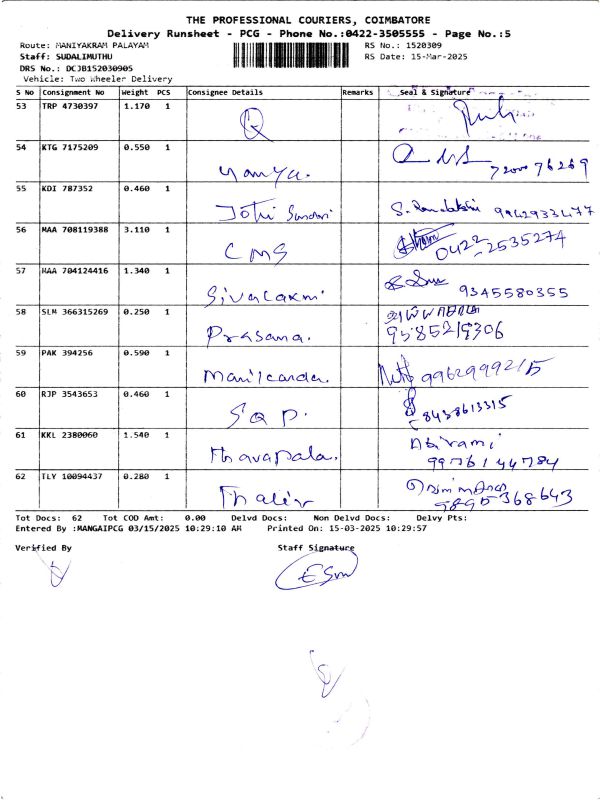 THE PROFESSIONAL COURIERS, COIMBATORE
Delivery Runsheet - PCG - Phone No.:0422-3505555 - Page No.:5
Route: MANIYAKRAM PALAYAM
RS No.: 1520309
Staff: SUDALIMUTHU
RS Date: 15-Mar-2025
DRS No.: DCJB152030905
Vehicle: Two Wheeler Delivery
S No Consignment No Weight PCS Consignee Details Remarks Seal & Signature
53 TRP 4730397 1.170 1
54 KTG 7175209 0.550 1 yamya. 7200076269
55 KDI 787352 0.460 1 Jothi Sundari 9942933477
56 MAA 708119388 3.110 1 CMS 0422-2535274
57 MAA 704124416 1.340 1 Sivalaxmi 9345580355
58 SLM 366315269 0.250 1 Prasana. 9585219306
59 PAK 394256 0.590 1 Manikanda. 9962999215
60 RJP 3543653 0.460 1 SQP. 8438613315
61 KKL 2380060 1.540 1 Thavapala. Abirami
9976144784
62 TLY 10094437 0.280 1 Thalir 9895368643
Tot Docs: 62 Tot COD Amt: 0.00 Delvd Docs: Non Delvd Docs: Delvy Pts:
Entered By :MANGAIPCG 03/15/2025 10:29:10 AM Printed On: 15-03-2025 10:29:57
Verified By Staff Signature